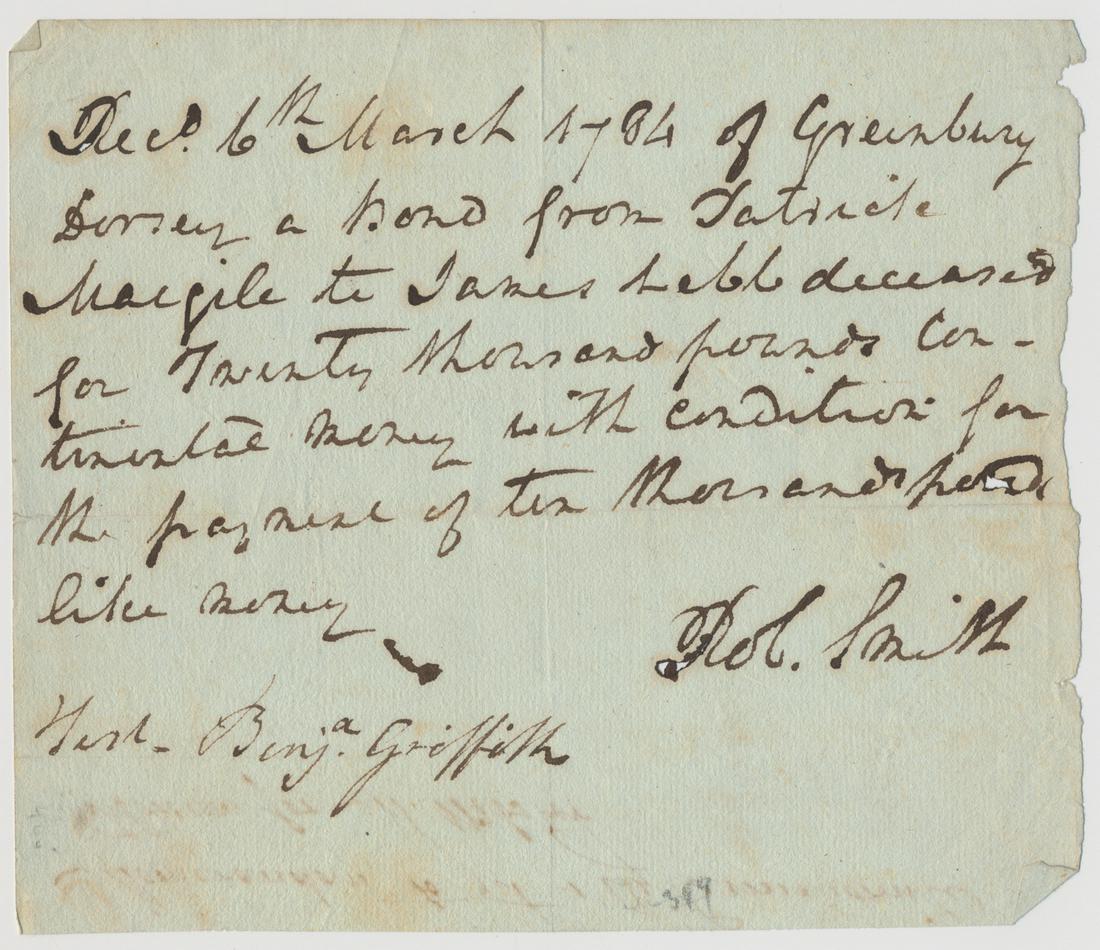 Recd. 6th March 1784 of Greenbury
Dorsey a bond from Patrick
Macgile to James Hebb deceased
for Twenty thousand pounds Con-
tinental money with condition for
the payment of ten thousands pounds
like money
Rob. Smith
Test- Benja. Griffith